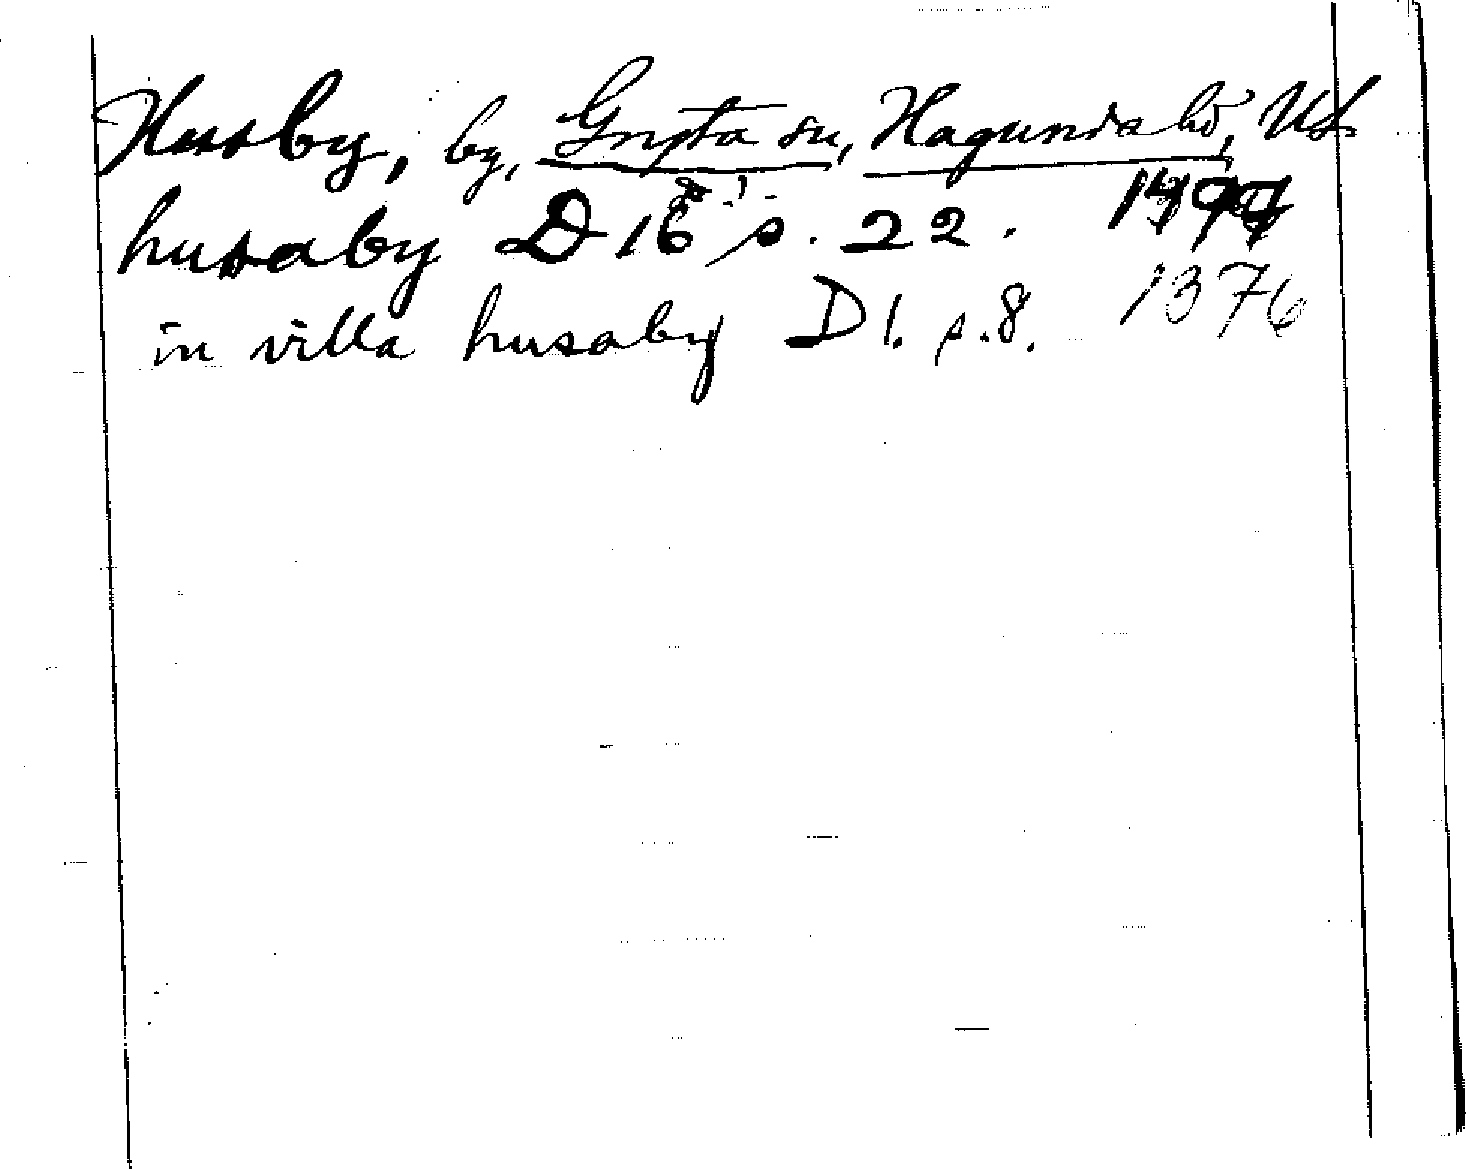 Husby, by, Gryta sn, Hagunda hd, Upl.
husaby D 16 s. 22.
in villa husaby D 1. s. 8. 1376